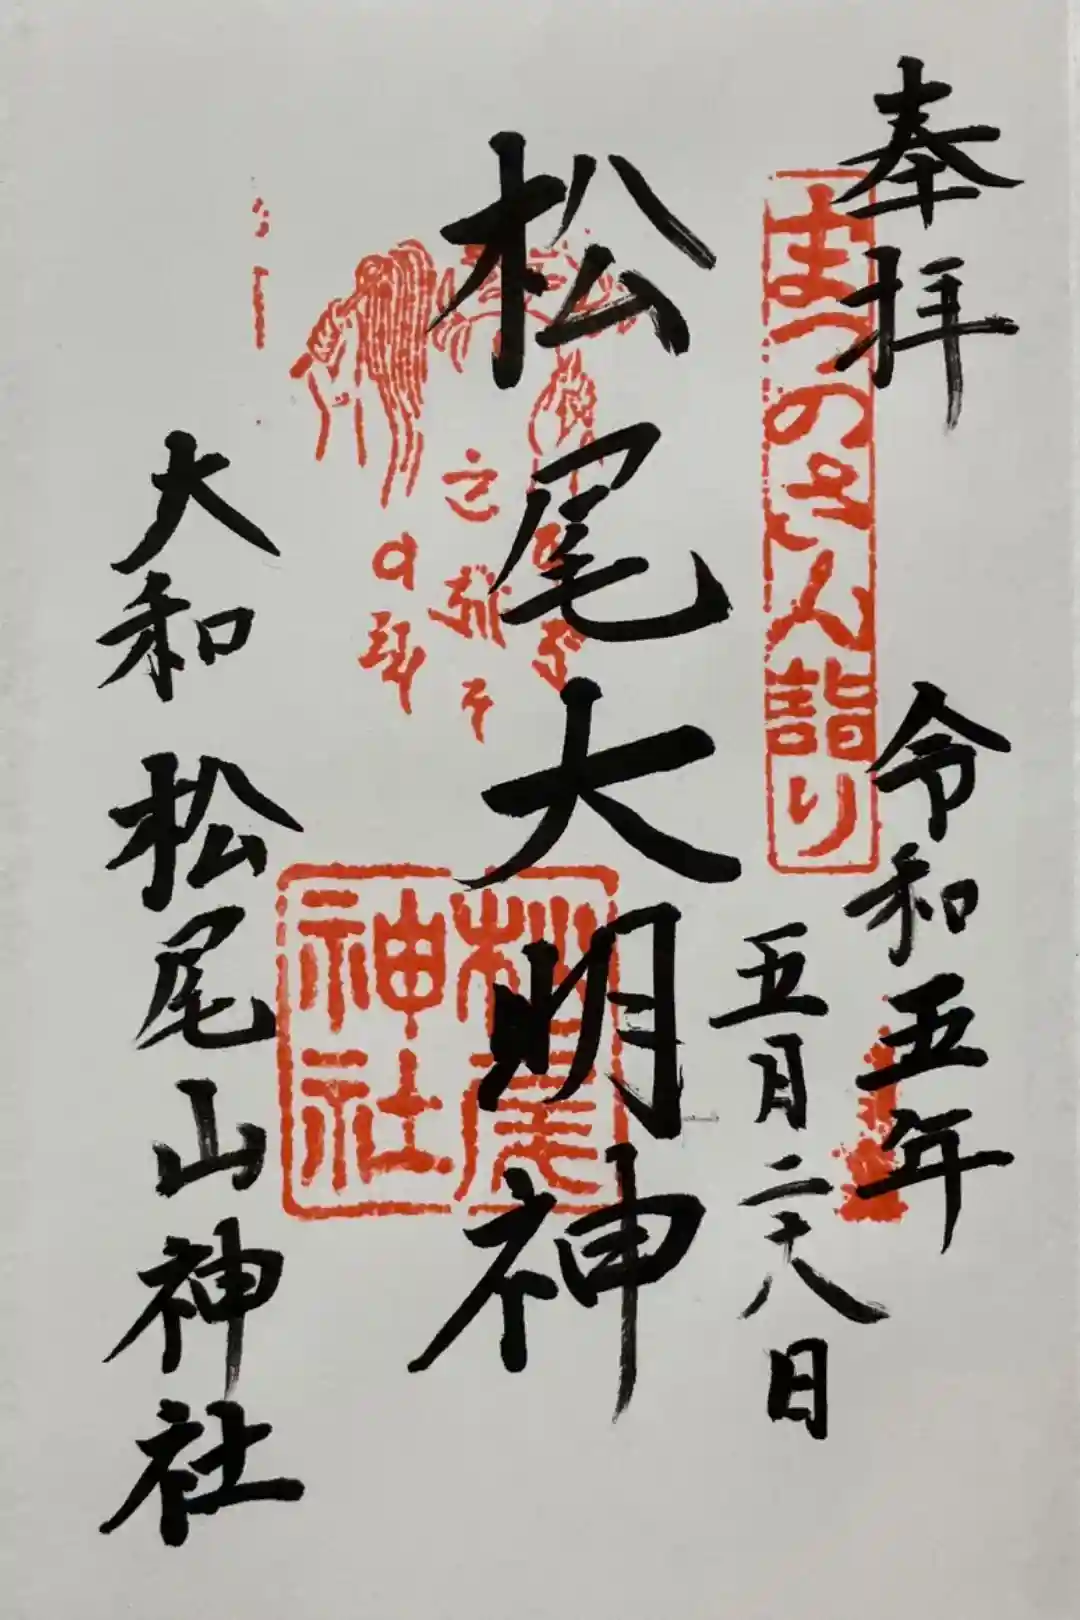 奉拝
まつのさん詣り
令和五年
五月二十八日
松尾大明神
松尾
神社
大和 松尾山神社